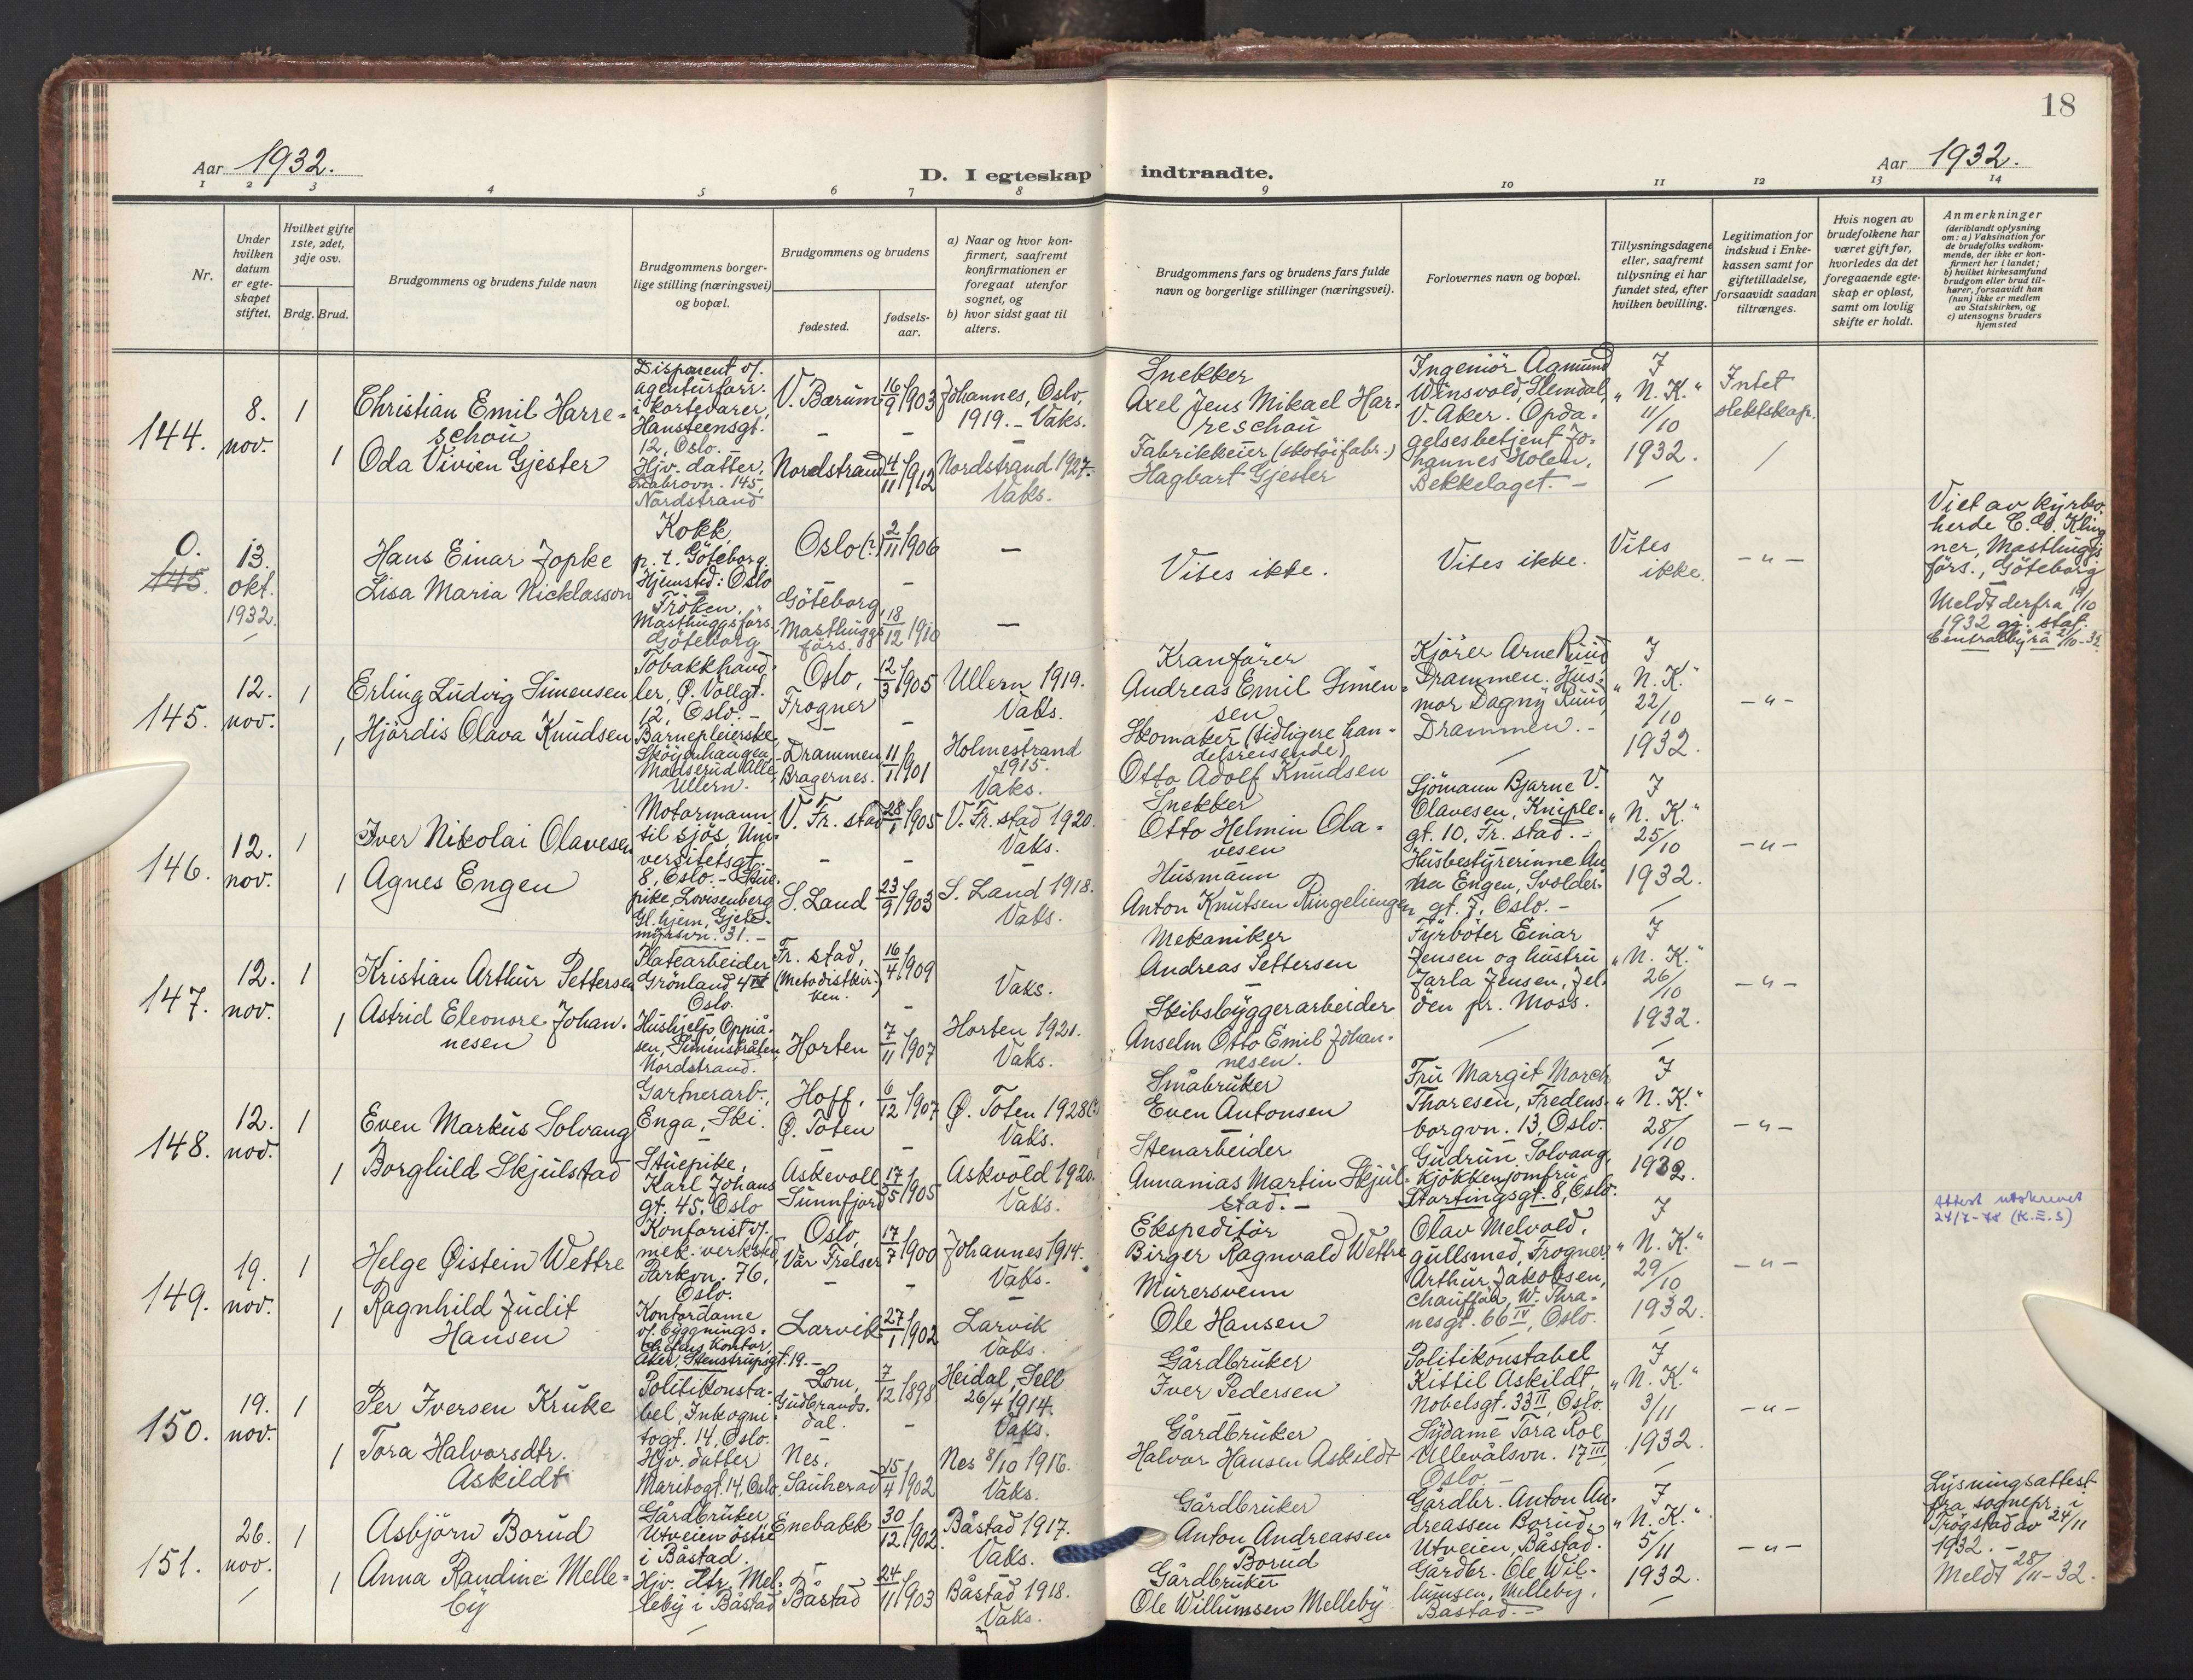 18
Aar 1932.
D. I egteskap indtraadte.
Aar 1932.
1 2 3 4 5 6 7 8 9 10 11 12 13 14
Nr.
Under hvilken datum er egteskapet stiftet.
Hvilket gifte 1ste, 2det, 3dje osv.
Brdg. Brud.
Brudgommens og brudens fulde navn
Brudgommens borgerlige stilling (næringsvei) og bopæl.
Brudgommens og brudens
fødested.
fødselsaar.
a) Naar og hvor konfirmert, saafremt konfirmationen er foregaat utenfor sognet, og
b) hvor sidst gaat til alters.
Brudgommens fars og brudens fars fulde navn og borgerlige stillinger (næringsvei).
Forlovernes navn og bopæl.
Tillysningsdagene eller, saafremt tillysning ei har fundet sted, efter hvilken bevilling.
Legitimation for indskud i Enkekassen samt for giftetilladelse, forsaavidt saadan tiltrænges.
Hvis nogen av brudefolkene har været gift før, hvorledes da det foregaaende egteskap er opløst, samt om lovlig skifte er holdt.
Anmerkninger
(deriblandt oplysning om: a) Vaksination for de brudefolks vedkommende, der ikke er konfirmert her i landet;
b) hvilket kirkesamfund brudgom eller brud tilhører, forsaavidt han (hun) ikke er medlem av Statskirken, og
c) utensogns bruders hjemsted
144.
8. nov.
1
Christian Emil Harre=
schou
Disponent v/.
agenturforr.
i kortevarer,
Hansteensgt.
12, Oslo. –
V. Bærum
16/9 1903
Johannes, Oslo,
1919. – Vaks.
Snekker
Axel Jens Mikael Har=
reschou
1
Oda Vivien Gjester
Hjv. datter,
Ljabrovn. 145,
Nordstrand
Nordstrand
4/11 1912
Nordstrand 1927.
Vaks.
Fabrikkeier (skotöifabr.)
Hagbart Gjester
Ingeniör Agmund
Winsvold, Slemdal,
V. Aker. Opda=
gelsesbetjent Jo=
hannes Holen,
Bekkelaget. –
I
„N. K."
11/10
1932.
Intet
slektskap.
0.
145.
13.
okt.
1932
Hans Einar Jopke
Kokk,
p. t. Göteborg.
Hjemsted: Oslo
Oslo (?)
2/11 1906
–
Lisa Maria Nicklasson
Fröken,
Masthuggsförs.
Göteborg
Göteborg,
Masthuggs
förs.
18/12 1910
–
Vites ikke.
Vites ikke.
Vites
ikke.
– " –
Viet av kyrko
herde C. O. Kling
ner, Masthuggs
förs., Göteborg
Meldt derfra 19/10
1932 gj. stat.
Centralbyrå 2/10-32
145.
12.
nov.
1
Erling Ludvig Simensen
Tobakkhand=
ler, Ø. Vollgt.
12, Oslo. –
Oslo,
Frogner
12/3 1905
Ullern 1919.
Vaks.
Kranförer
Andreas Emil Simen=
sen
1
Hjördis Olava Knudsen
Barnepleierske,
Sköyenhaugen,
Madserud Alle,
Ullern.
Drammen
Bragernes.
11/1 1901
Holmestrand
1915.
Vaks.
Skomaker (tidligere han=
delsreisende)
Otto Adolf Knudsen
Kjörer Arne Ruud
Drammen. Hus=
mor Dagny Ruud
Drammen. –
I
„N. K."
22/10
1932.
– " –
146.
12.
nov.
1
Iver Nikolai Olavesen
Motormann
til sjös, Uni=
versitetsgt.
8, Oslo. –
V. Fr. stad
28/1 1905
V. Fr. stad 1920.
Vaks.
Snekker
Otto Helmin Ola=
vesen
1
Agnes Engen
Stue=
pike, Lovisenberg
Gl. hjem, Gjete=
myrsvn. 31. –
S. Land
23/9 1903
S. Land 1918.
Vaks.
Husmann
Anton Knutsen Ringeliengen
Sjömann Bjarne V.
Olavesen, Kniple=
gt. 10, Fr. stad. –
Husbestyrerinne An
na Engen, Svolder=
gt. 7, Oslo. –
I
„N. K."
25/10
1932.
– " –
147.
12.
nov.
1
Kristian Arthur Pettersen
Platearbeider
Grönland 4 IV
Oslo.
Fr. stad,
(Metodistkir=
ken.)
16/4 1909
Vaks.
Mekaniker
Andreas Pettersen
1
Astrid Eleonore Johan=
nesen
Hushjelp, Oppiå=
sen, Simenstråten,
Nordstrand.
Horten
7/11 1907
Horten 1921.
Vaks.
Skibsbyggerarbeider
Anselm Otto Emil Johan=
nesen.
Fyrböter Einar
Jensen og hustru
Jarla Jensen, Jel=
öen pr. Moss.
I
„N. K."
26/10
1932.
– " –
148.
12.
nov.
1
Even Markus Solvang
Gartnerarb.,
Enga, Ski.
Hoff,
Ø. Toten
6/12 1907
Ø. Toten 1928(?)
Vaks.
Småbruker
Even Antonsen
1
Borghild Skjulstad
Stuepike,
Karl Johans
gt. 45, Oslo
Askevoll
Sunnfjord
17/5 1905
Askvold 1920.
Vaks.
Stenarbeider
Annanias Martin Skjul=
stad. –
Fru Margit March
Thoresen, Fredens=
borgvn. 13, Oslo.
Gudrun Solvang,
kjökkenjomfru
Stortingsgt. 8, Oslo.
I
„N. K."
28/10
1932.
– " –
149.
19.
nov.
1
Helge Øistein Wettre
Kontorist v/.
mek. verksted,
Parkvn. 76,
Oslo.
Oslo,
Vår Frelser
17/7 1900
Johannes 1914.
Vaks.
Ekspeditör
Birger Ragnvald Wettre
1
Ragnhild Judit
Hansen
Kontordame
v/. bygnings=
chefens kontor,
Aker, Stenstrupsgt. 19. –
Larvik
27/1 1902
Larvik
Vaks.
Murersvenn
Ole Hansen
Olav Melvold,
gullsmed, Frogner.
Arthur Jakobsen,
chauffør, W. Thra=
nesgt. 66 IV, Oslo.
I
„N. K."
29/10
1932.
– " –
Attest utskrevet
24/7-78 (K.E.S)
150.
19.
nov.
1
Per Iversen Kruke
Politikonsta=
bel, Inkogni=
togt. 14, Oslo.
Lom,
Gudbrands=
dal.
7/12 1898
Heidal, Sell
26/4 1914.
Vaks.
Gårdbruker
Iver Pedersen
1
Tora Halvorsdtr.
Askildt
Hjv. datter
Maribogt. 14, Oslo.
Nes,
Sauherad
25/4 1902
Nes 8/10 1916.
Vaks.
Gårdbruker
Halvor Hansen Askildt
Politikonstabel
Kittil Askildt,
Nobelsgt. 33 II, Oslo.
Sydame Tora Roe
Ullevålsvn. 17 III,
Oslo –
I
„N. K."
3/11
1932.
– " –
151.
26.
nov.
1
Asbjörn Borud
Gårdbruker
Utveien östre
i Båstad.
Enebakk
30/12 1902.
Båstad 1917.
Vaks.
Gårdbruker
Anton Andreassen
Borud
1
Anna Randine Melle=
by
Hjv. dtr. Mel=
leby i Båstad
Båstad
24/11 1903
Båstad 1918.
Vaks.
Gårdbruker
Ole Willumsen Melleby
Gårdbr. Anton An=
dreassen Borud,
Utveien, Båstad.
Gårdbr. Ole Wil=
lumsen, Melleby,
Båstad. –
I
„N. K."
5/11
1932.
– " –
Lysningsattest
fra sognepr. i
Trögstad av 24/11
1932. –
Meldt 28/11-32.